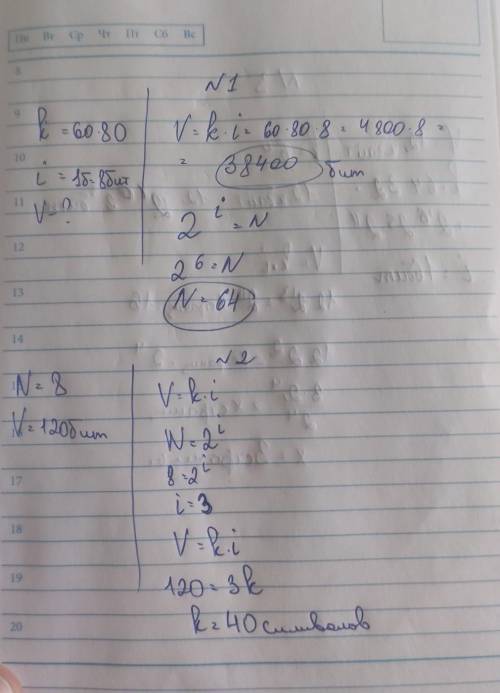 Пн Вт Ср Чт Пт Сб Вс
8
9
10
11
12
13
14
17
18
19
20
N1
k = 60·80
i = 1б = 8бит
V = ?
V = k·i = 60·80·8 = 4800·8 =
= 38400 бит
2^i = N
2^6 = N
N = 64
N2
N = 8
V = 120бит
V = k·i
N = 2^i
8 = 2^i
i = 3
V = k·i
120 = 3k
k = 40 символов